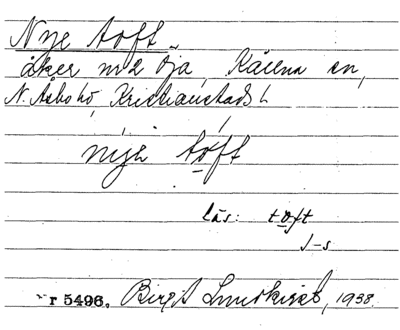 Nye toft
åker n:r 2 Öja, Kållna sn,
N. Åsbo hd, Kristianstads l.
nỳe tóft
läs: toft
J-s
r 5496. Birgit Lundkvist, 1938.